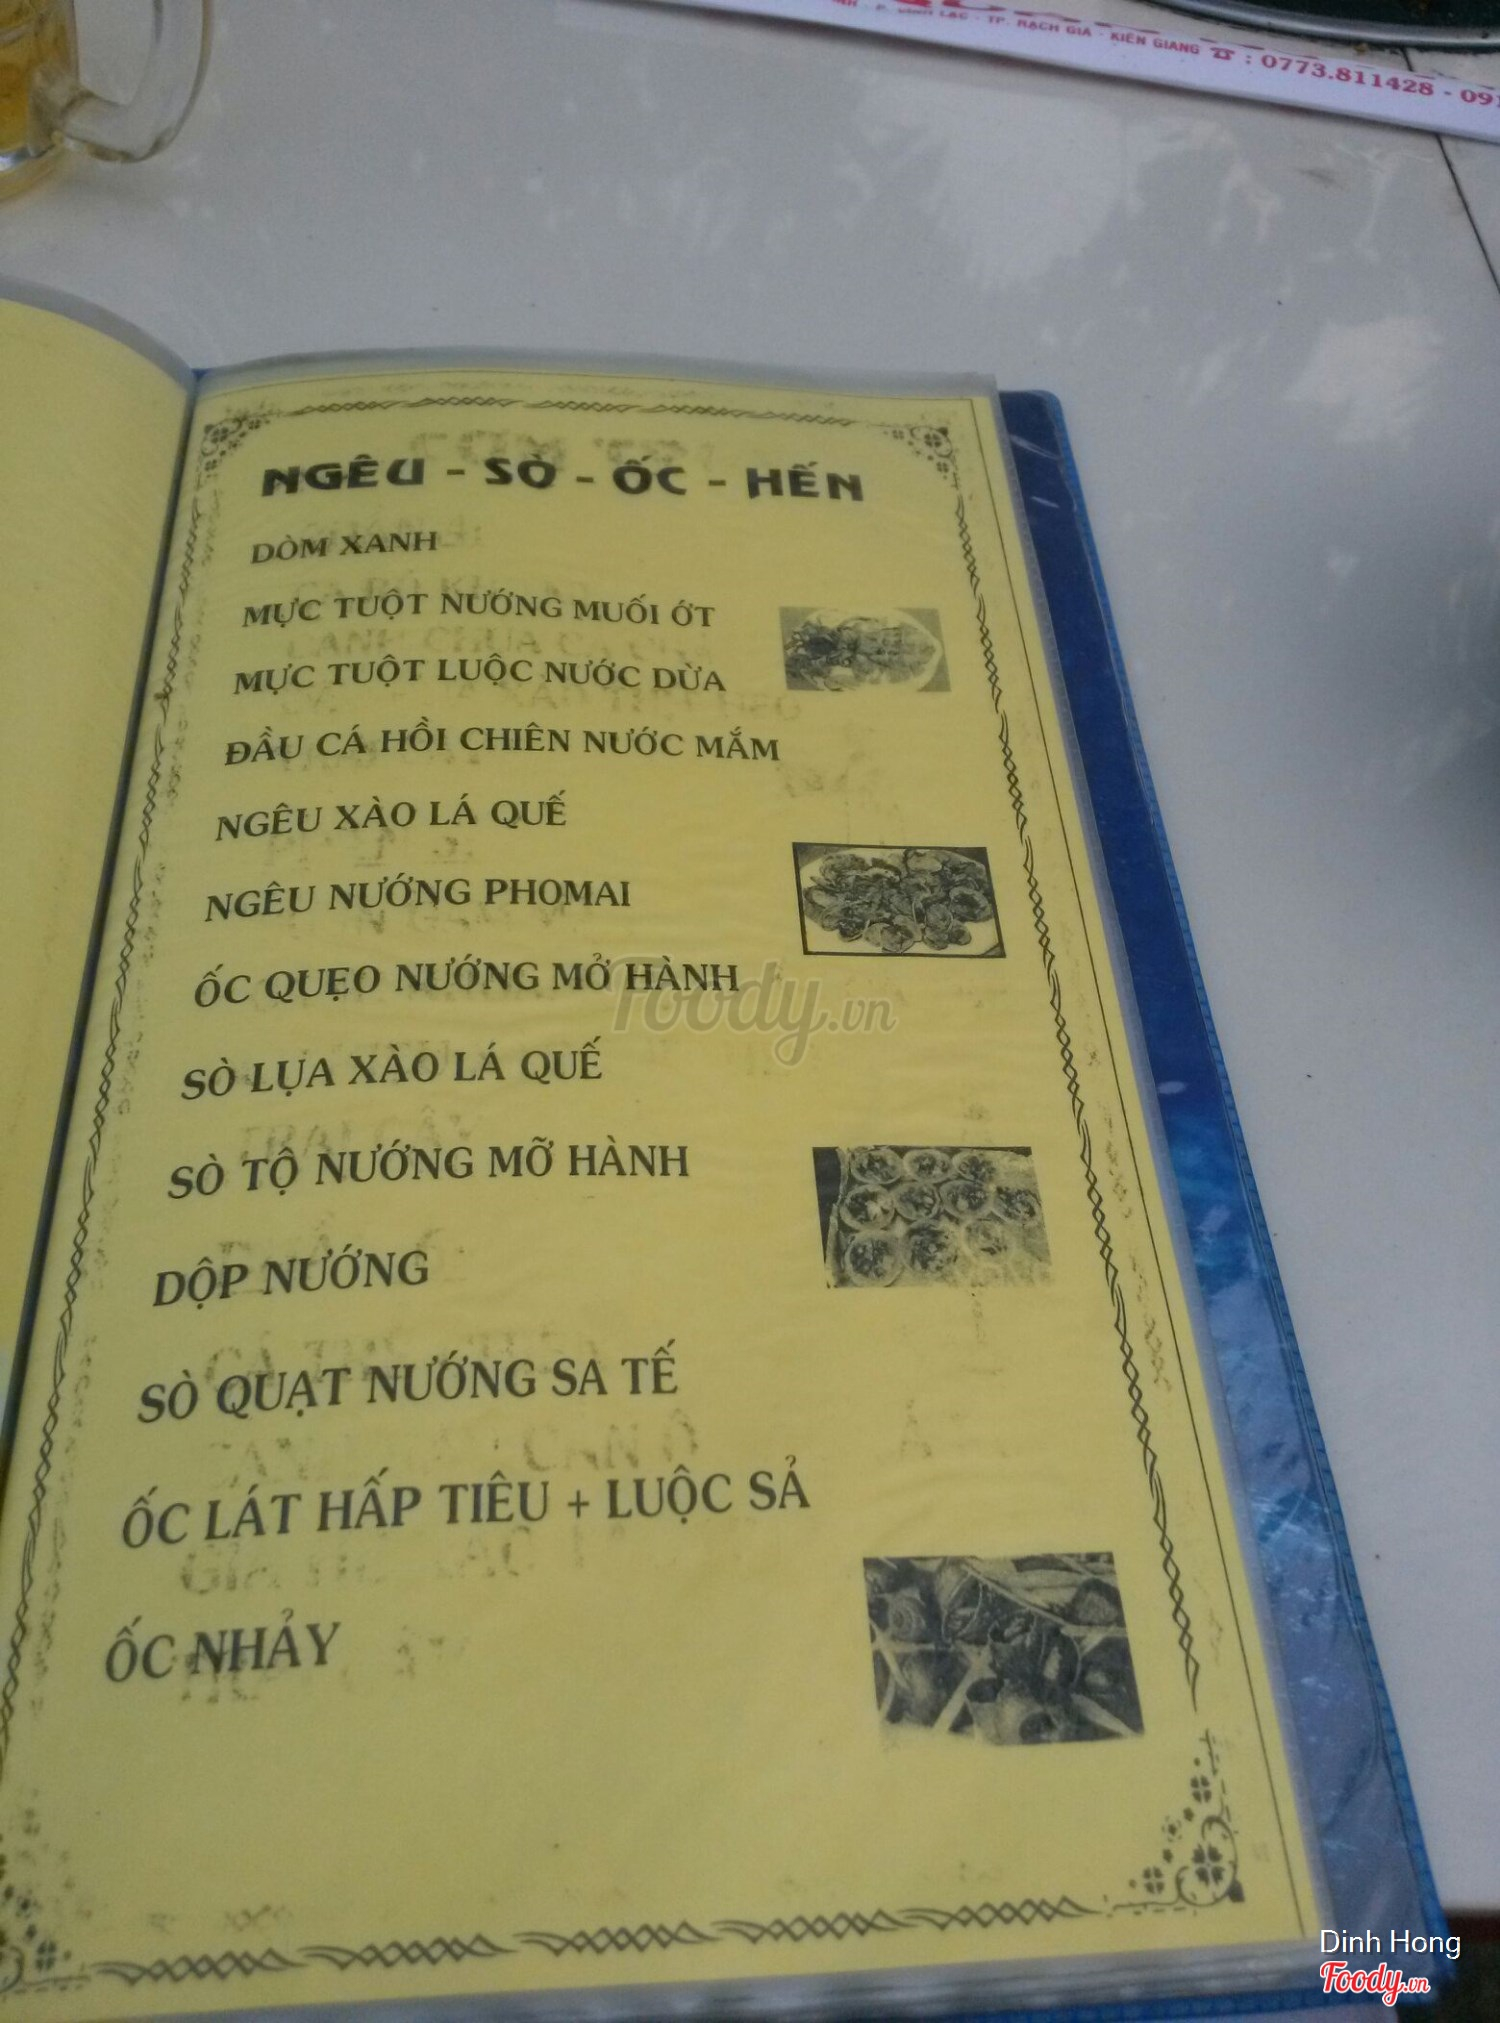 P. VĨNH LẠC - TP. RẠCH GIÁ - KIÊN GIANG ☎ : 0773.811428 - 091
NGÊU - SÒ - ỐC - HẾN
DÒM XANH
MỰC TUỘT NƯỚNG MUỐI ỚT
MỰC TUỘT LUỘC NƯỚC DỪA
ĐẦU CÁ HỒI CHIÊN NƯỚC MẮM
NGÊU XÀO LÁ QUẾ
NGÊU NƯỚNG PHOMAI
ỐC QUẸO NƯỚNG MỞ HÀNH
Foody.vn
SÒ LỤA XÀO LÁ QUẾ
SÒ TỘ NƯỚNG MỠ HÀNH
DỘP NƯỚNG
SÒ QUẠT NƯỚNG SA TẾ
ỐC LÁT HẤP TIÊU + LUỘC SẢ
ỐC NHẢY
Dinh Hong
Foody.vn